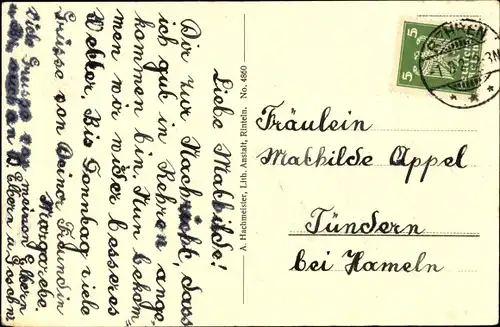 Liebe Mathilde!
Dir zur Nachricht, dass
ich gut in Rehren ange-
kommen bin. Nun bekom-
men wir wider besseres
Wetter. Bis Sonntag viele
Grüsse von Deiner Freundin
Margarete.
Viele Grüsse von meinen Eltern
auch an D. Eltern u. Geschw.
A. Hachmeister, Lith. Anstalt, Rinteln. No. 4860
REHREN
5 5
Fräulein
Mathilde Appel
Tündern
bei Hameln